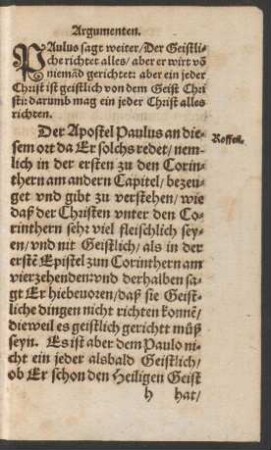 Argumenten.
PAulus sagt weiter/Der Geistli⸗
che richtet alles/ aber er wirt vō
niemād gerichtet: aber ein jeder
Christ ist geistlich von dem Geist Chri
sti: darumb mag ein jeder Christ alles
richten.
Der Apostel Paulus an die⸗
sem ort da Er solchs redet/nem⸗
lich in der ersten zu den Corin⸗
thern am andern Capitel/ bezeu⸗
get vnd gibt zu verstehen/ wie
daß der Christen vnter den Co⸗
rinthern sehr viel fleischlich sey⸗
en/vnd nit Geistlich/ als in der
erstē Epistel zum Corinthern am
vierzehenden: vnd derhalben sa⸗
gt Er hiebeuoren/daß sie Geist⸗
liche dingen nicht richten konnē/
dieweil es geistlich gerichtt müß
seyn. Es ist aber dem Paulo ni⸗
cht ein jeder alsbald Geistlich/
ob Er schon den Heiligen Geist
h hat/
Roffen.